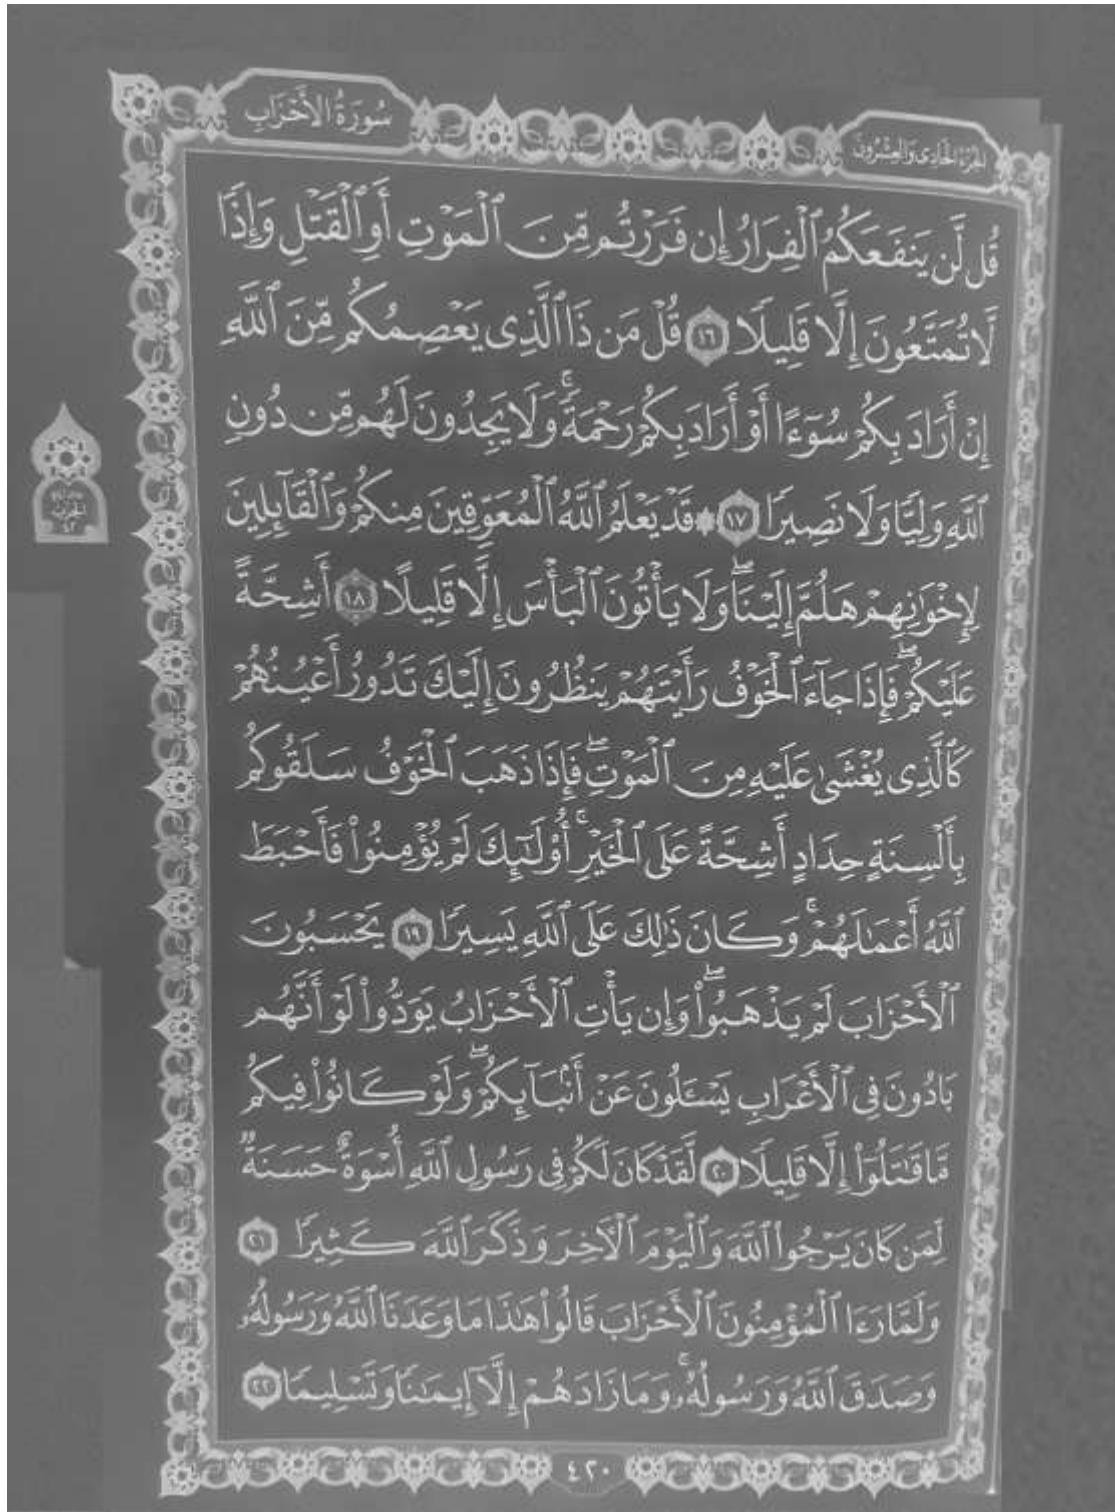 الجزء الحادي والعشرون
سُورَةُ الأَحْزَابِ
قُل لَّن يَنفَعَكُمُ ٱلْفِرَارُ إِن فَرَرْتُم مِّنَ ٱلْمَوْتِ أَوِ ٱلْقَتْلِ وَإِذًا
لَّا تُمَتَّعُونَ إِلَّا قَلِيلًا ١٦ قُلْ مَن ذَا ٱلَّذِى يَعْصِمُكُم مِّنَ ٱللَّهِ
إِنْ أَرَادَ بِكُمْ سُوٓءًا أَوْ أَرَادَ بِكُمْ رَحْمَةً ۚ وَلَا يَجِدُونَ لَهُم مِّن دُونِ
ٱللَّهِ وَلِيًّا وَلَا نَصِيرًا ١٧ ۞ قَدْ يَعْلَمُ ٱللَّهُ ٱلْمُعَوِّقِينَ مِنكُمْ وَٱلْقَآئِلِينَ
لِإِخْوَٰنِهِمْ هَلُمَّ إِلَيْنَا ۖ وَلَا يَأْتُونَ ٱلْبَأْسَ إِلَّا قَلِيلًا ١٨ أَشِحَّةً
عَلَيْكُمْ ۖ فَإِذَا جَآءَ ٱلْخَوْفُ رَأَيْتَهُمْ يَنظُرُونَ إِلَيْكَ تَدُورُ أَعْيُنُهُمْ
كَٱلَّذِى يُغْشَىٰ عَلَيْهِ مِنَ ٱلْمَوْتِ ۖ فَإِذَا ذَهَبَ ٱلْخَوْفُ سَلَقُوكُم
بِأَلْسِنَةٍ حِدَادٍ أَشِحَّةً عَلَى ٱلْخَيْرِ ۚ أُو۟لَٰٓئِكَ لَمْ يُؤْمِنُوا۟ فَأَحْبَطَ
ٱللَّهُ أَعْمَٰلَهُمْ ۚ وَكَانَ ذَٰلِكَ عَلَى ٱللَّهِ يَسِيرًا ١٩ يَحْسَبُونَ
ٱلْأَحْزَابَ لَمْ يَذْهَبُوا۟ ۖ وَإِن يَأْتِ ٱلْأَحْزَابُ يَوَدُّوا۟ لَوْ أَنَّهُم
بَادُونَ فِى ٱلْأَعْرَابِ يَسْـَٔلُونَ عَنْ أَنۢبَآئِكُمْ ۖ وَلَوْ كَانُوا۟ فِيكُم
مَّا قَٰتَلُوٓا۟ إِلَّا قَلِيلًا ٢٠ لَّقَدْ كَانَ لَكُمْ فِى رَسُولِ ٱللَّهِ أُسْوَةٌ حَسَنَةٌ
لِّمَن كَانَ يَرْجُوا۟ ٱللَّهَ وَٱلْيَوْمَ ٱلْـَٔاخِرَ وَذَكَرَ ٱللَّهَ كَثِيرًا ٢١
وَلَمَّا رَءَا ٱلْمُؤْمِنُونَ ٱلْأَحْزَابَ قَالُوا۟ هَٰذَا مَا وَعَدَنَا ٱللَّهُ وَرَسُولُهُۥ
وَصَدَقَ ٱللَّهُ وَرَسُولُهُۥ ۚ وَمَا زَادَهُمْ إِلَّآ إِيمَٰنًا وَتَسْلِيمًا ٢٢
الحزب
٤٢
٤٢٠